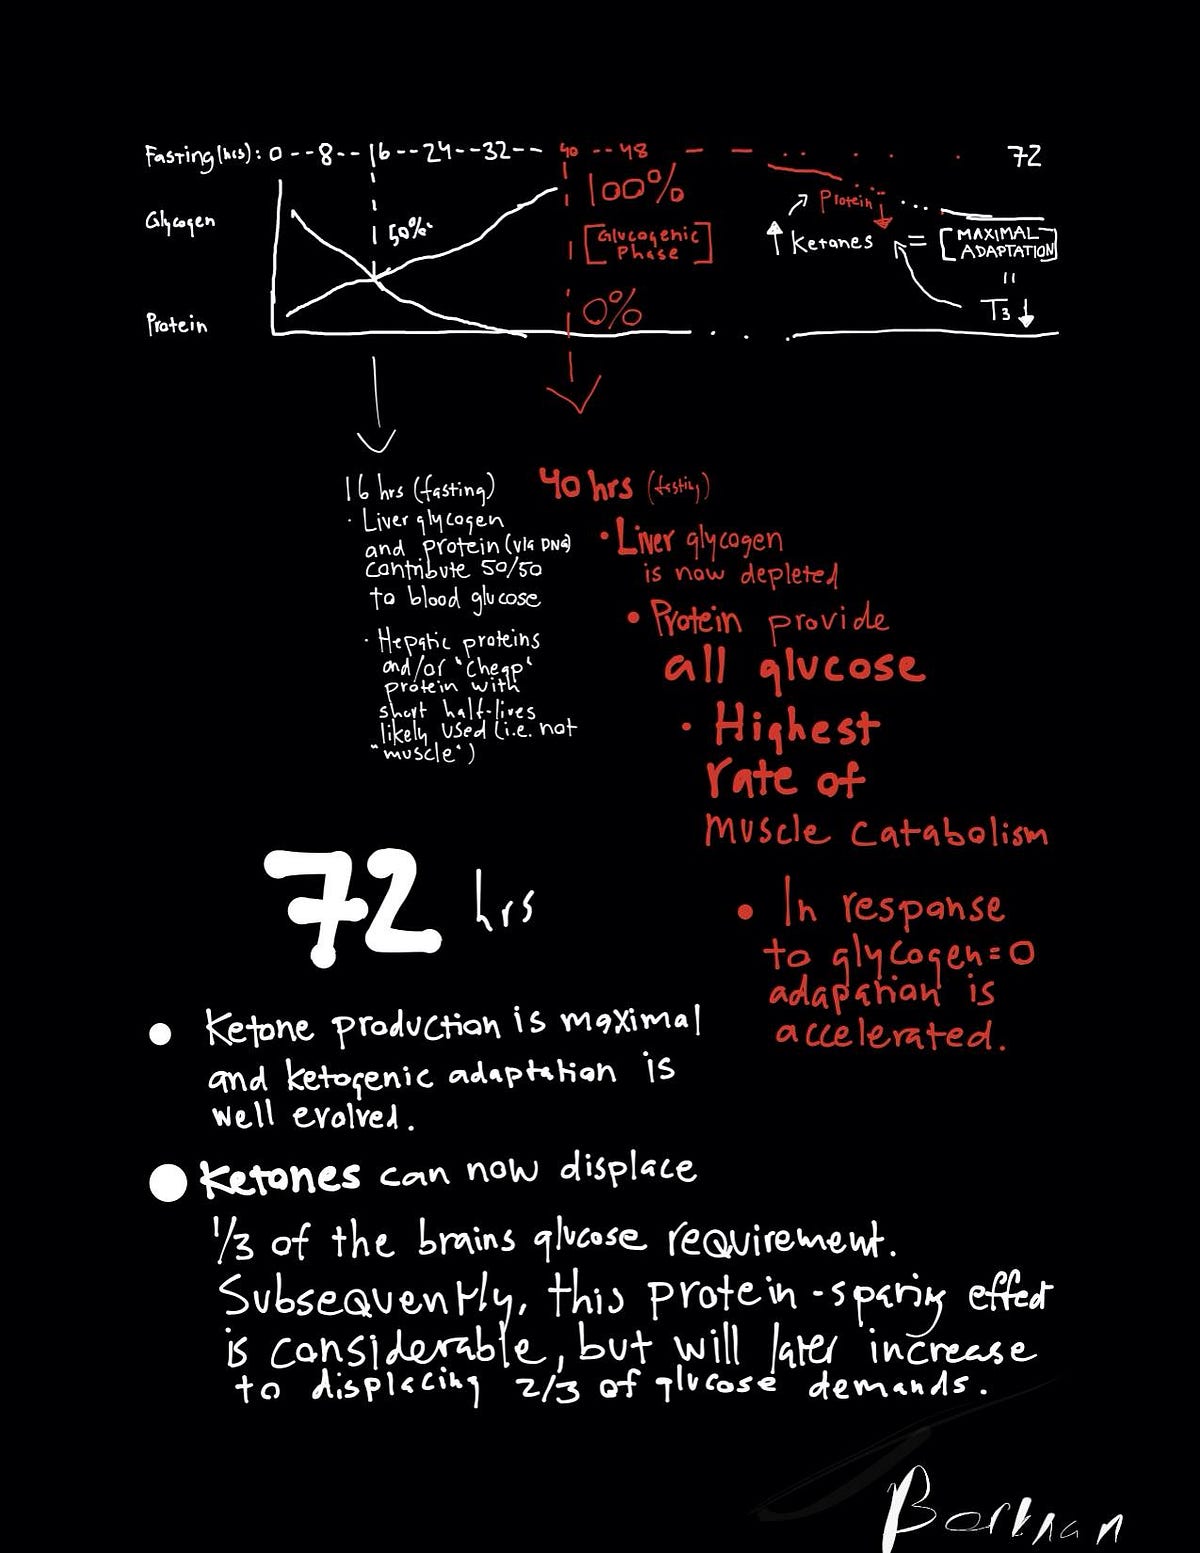 Fasting (hrs): 0 -- 8 -- 16 -- 24 -- 32 -- 40 -- 48 — — . . . . . 72
Glycogen
Protein
50%
100%
[Glucogenic
Phase]
0%
↗ Protein ↓
↑ Ketones = [MAXIMAL
ADAPTATION]
=
T3 ↓
16 hrs (fasting)
· Liver glycogen
and protein (via DNG)
contribute 50/50
to blood glucose
· Hepatic proteins
and/or "cheap"
protein with
short half-lives
likely used (i.e. not
"muscle")
40 hrs (fasting)
• Liver glycogen
is now depleted
• Protein provide
all glucose
• Highest
rate of
muscle catabolism
• In response
to glycogen=0
adapation is
accelerated.
72 hrs
• Ketone production is maximal
and ketogenic adaptation is
well evolved.
• Ketones can now displace
1/3 of the brains glucose requirement.
Subsequently, this protein-sparing effect
is considerable, but will later increase
to displacing 2/3 of glucose demands.